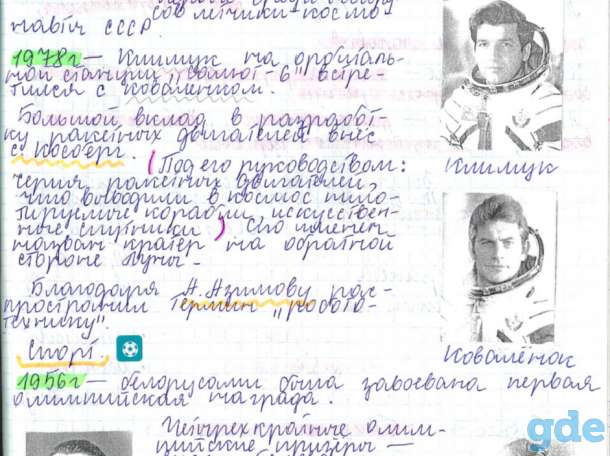 сов лётчики-космо-
навты СССР.
1978г — Климук на орбиталь-
ной станции "Салют - 6" встре-
тился с Коваленком.
Климук
Большой вклад в разработ-
ку ракетных двигателей внёс
С. Косберг. (Под его руководством:
серия ракетных двигателей,
что выводили в космос пило-
тируемые корабли, искусствен-
ные спутники) Его именем
назван кратер на обратной
стороне Луны -
Ковалёнок
Благодаря А. Азимову рас-
пространим термин "робото-
технику".
Спорт.
1956г — белорусами была завоевана первая
олимпийская награда.
Четырехкратные олим-
пийские призёры —
gde